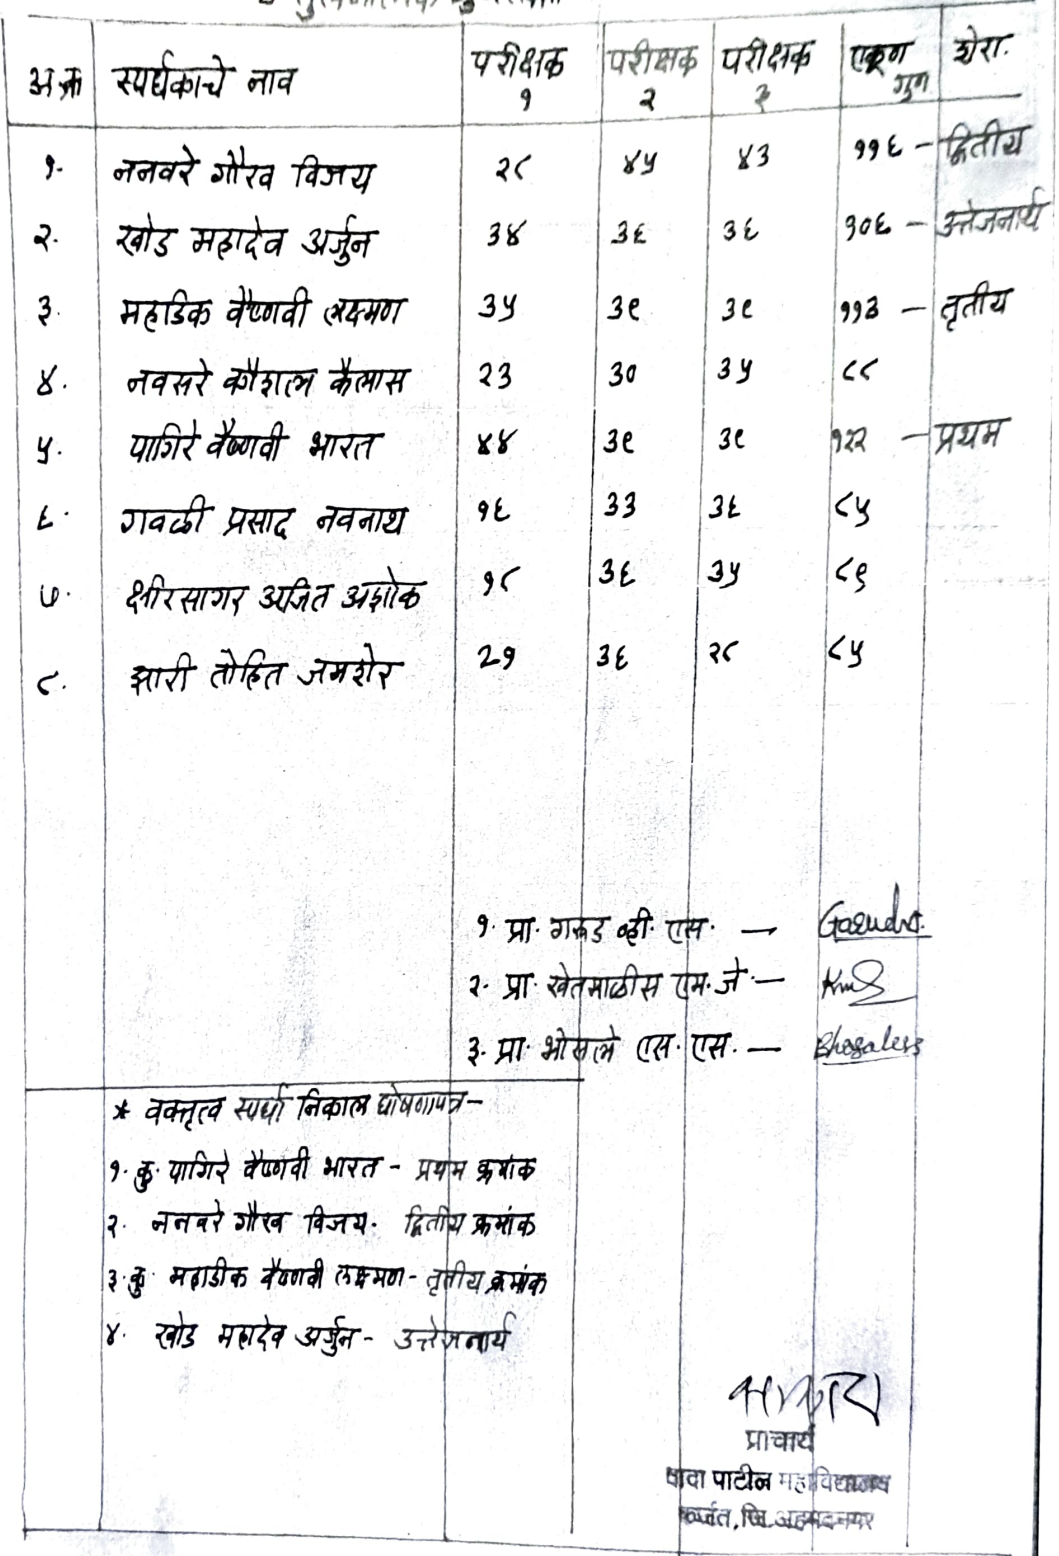 अ.क्र स्पर्धकाचे नाव परीक्षक १ परीक्षक २ परीक्षक ३ एकूण गुण शेरा.
१. ननवरे गौरव विजय २८ ४५ ४३ ११६ - द्वितीय
२. खोड महादेव अर्जुन ३४ ३६ ३६ १०६ - उत्तेजनार्थ
३. महाडिक वैष्णवी लक्ष्मण ३५ ३९ ३९ ११३ - तृतीय
४. नवसरे कौशल कैलास २३ ३० ३५ ८८
५. पागिरे वैष्णवी भारत ४४ ३९ ३९ १२२ - प्रथम
६. गवळी प्रसाद नवनाथ १६ ३३ ३६ ८५
७. क्षीरसागर अजित अशोक १८ ३६ ३५ ८९
८. झारी तोहित जमशेर २१ ३६ २८ ८५
१. प्रा. गरुड व्ही. एस. —
२. प्रा. खेतमाळीस एम. जे. —
३. प्रा. भोसले एस. एस. — Bhosaless
* वक्तृत्व स्पर्धा निकाल घोषणापत्र -
१. कु. पागिरे वैष्णवी भारत - प्रथम क्रमांक
२. ननवरे गौरव विजय. द्वितीय क्रमांक
३. कु. महाडीक वैष्णवी लक्ष्मण - तृतीय क्रमांक
४. खोड महादेव अर्जुन - उत्तेजनार्थ
प्राचार्य
दादा पाटील महाविद्यालय
कर्जत, जि. अहमदनगर